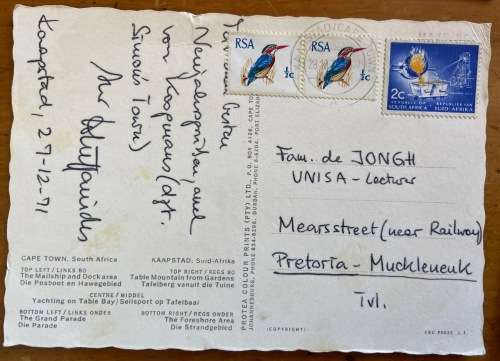 Neujahrsgrüßen (and
von Koopmans (agt.
Simon's Town)
Kaapstad, 27-12-71
CAPE TOWN, South Africa
KAAPSTAD: Suid-Afrika
TOP LEFT / LINKS BO
The Mailship and Dock area
Die Posboot en Hawegebied
TOP RIGHT / REGS BO
Table Mountain from Gardens
Tafelberg vanuit die Tuine
CENTRE / MIDDEL
Yachting on Table Bay / Seilsport op Tafelbaai
BOTTOM LEFT / LINKS ONDER
The Grand Parade
Die Parade
BOTTOM RIGHT / REGS ONDER
The Foreshore Area
Die Strandgebied
PROTEA COLOUR PRINTS (PTY) LTD., P.O. BOX 4126, CAPE TOWN
(COPYRIGHT)
RSA
½c
RSA
½c
2c
REPUBLIC OF SOUTH AFRICA
REPUBLIEK VAN SUID-AFRIKA
Fam. de JONGH
UNISA - Lecturer
Mearsstreet (near Railway)
Pretoria - Muckleneuk
Tvl.